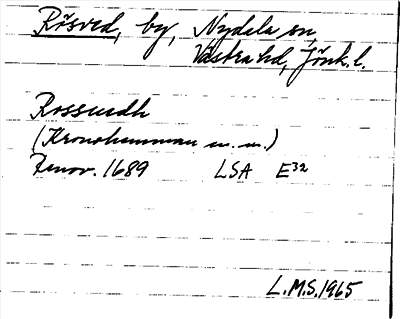 Rösved, by, Nydala sn,
Västra hd, Jönk. l.
Rossuedh
(Kronohemman m. m.)
Renov. 1689 LSA E³²
L.M.S. 1965